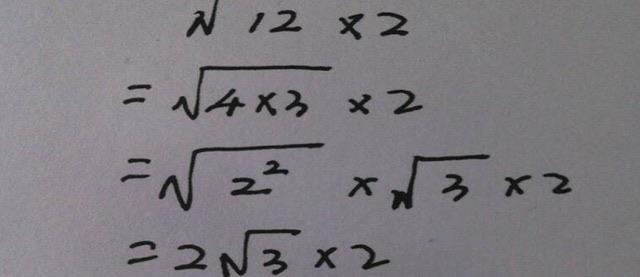 √12 × 2
= √4×3 × 2
= √2² × √3 × 2
= 2√3 × 2